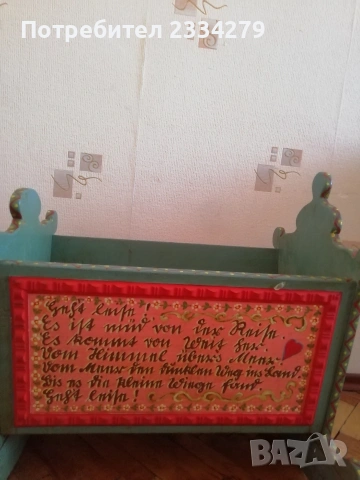 Потребител 2334279
Geht leise!
Es ist müd von der Reise.
Es kommt von Weit her:
Vom Himmel übers Meer.
Vom Meer den dunklen Weg ins Land
Bis es die kleine Wiege fand.
Geht leise!
BAZAR